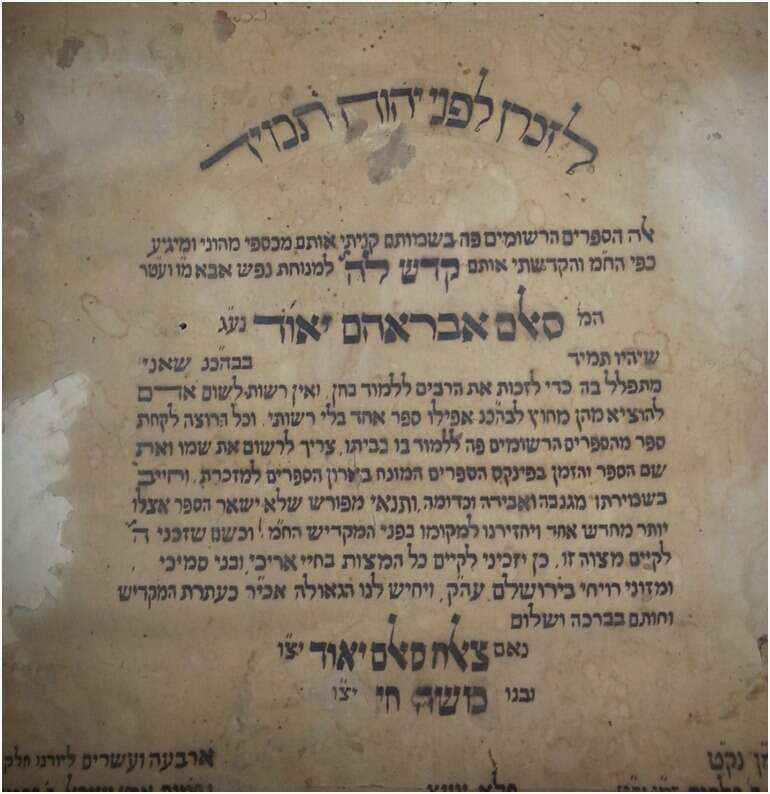 לזכרן לפני יהוה תמיד
אלה הספרים הרשומים פה בשמותם קניתי אותם מכספי מהוני ומיגיע
כפי הח״מ והקדשתי אותם קדש לה׳ למנוחת נפש אבא מו ועט״ר
המ׳ סאלם אבראהם יאוד נע״ג
שיהיו תמיד בבהכנ שאני
מתפלל בה כדי לזכות את הרבים ללמוד בהן, ואין רשות לשום אדם
להוציא מהן מחוץ לבהכנ אפילו ספר אחד בלי רשותי. וכל הרוצה לקחת
ספר מהספרים הרשומים פה ללמוד בו בביתו, צריך לרשום את שמו ואת
שם הספר והזמן בפינקס הספרים המונח בארון הספרים למזכרת, וחייב
בשמירתו מגנבה ואבידה וכדומה, ותנאי מפורש שלא ישאר הספר אצלו
יותר מחדש אחד ויחזירנו למקומו בפני המקדיש הח״מ! וכשם שזכני ה׳
לקיים מצוה זו, כן יזכיני לקיים כל המצות בחיי אריכי, ובני סמיכי
ומזוני רויחי בירושלם עה״ק, ויחיש לנו הגאולה אכי״ר כעתרת המקדיש
וחותם בברכה ושלום
נאם צאלח סאלם יאוד יצ״ו
ובנו משה חי יצ״ו
ארבעה ועשרים ליורנו חלק